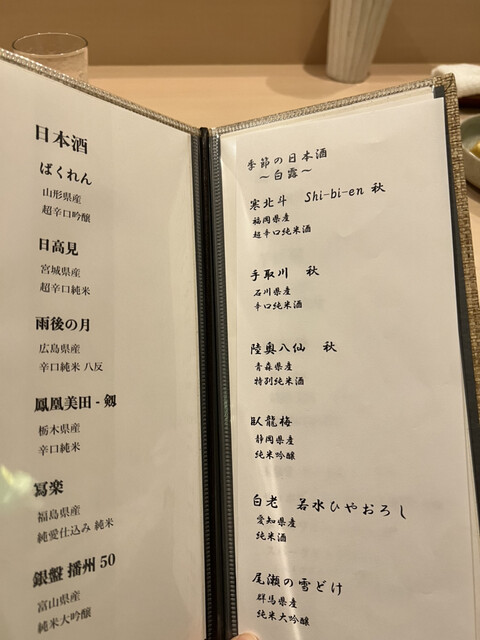 日本酒
ばくれん
山形県産
超辛口吟醸
日高見
宮城県産
超辛口純米
雨後の月
広島県産
辛口純米 八反
鳳凰美田 - 剱
栃木県産
辛口純米
冩楽
福島県産
純愛仕込み 純米
銀盤 播州 50
富山県産
純米大吟醸
季節の日本酒
～白露～
寒北斗 Shi-bi-en 秋
福岡県産
超辛口純米酒
手取川 秋
石川県産
辛口純米酒
陸奥八仙 秋
青森県産
特別純米酒
臥龍梅
静岡県産
純米吟醸
白老 若水ひやおろし
愛知県産
純米酒
尾瀬の雪どけ
群馬県産
純米大吟醸